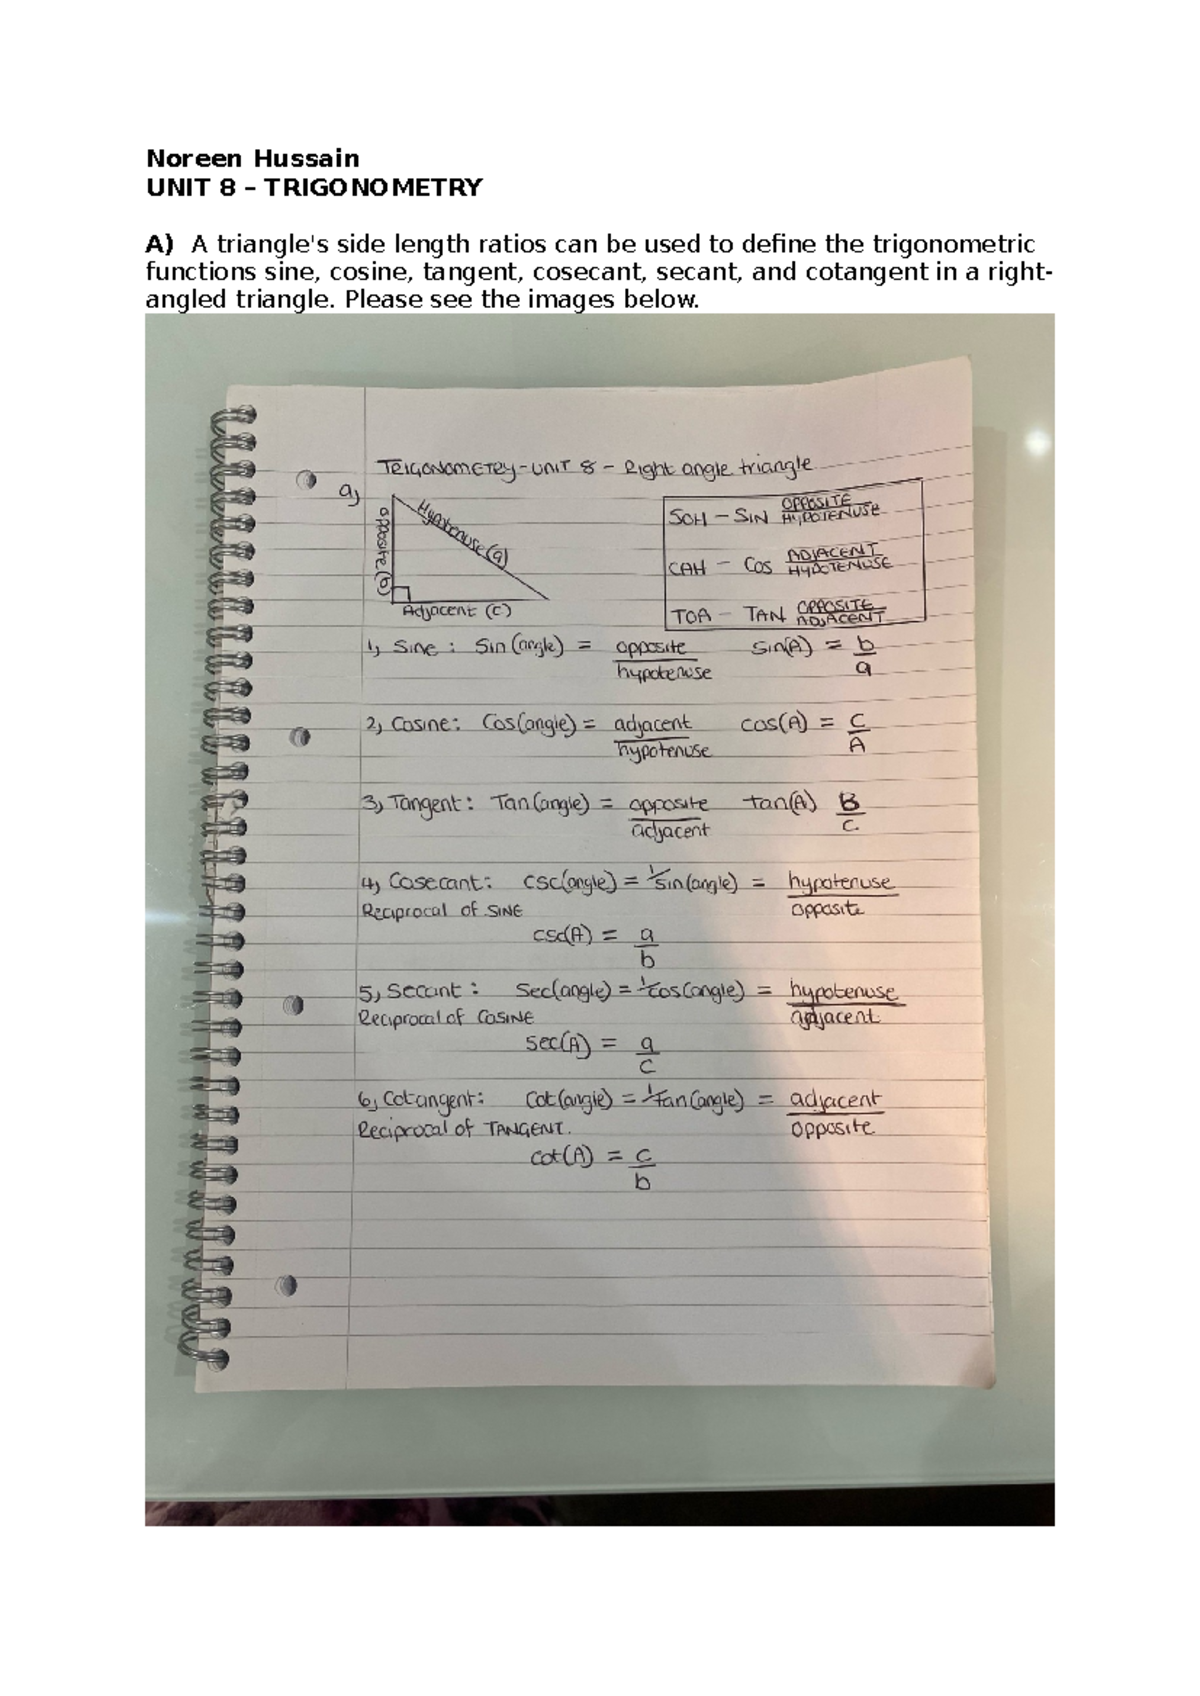 Noreen Hussain
UNIT 8 – TRIGONOMETRY
A) A triangle's side length ratios can be used to define the trigonometric
functions sine, cosine, tangent, cosecant, secant, and cotangent in a right-
angled triangle. Please see the images below.
TRIGONOMETRY-UNIT 8 - Right angle triangle
a)
opposite (b)
Hypotenuse (a)
Adjacent (c)
SOH - SIN OPPOSITE/HYPOTENUSE
CAH - COS ADJACENT/HYPOTENUSE
TOA - TAN OPPOSITE/ADJACENT
1) Sine : Sin (angle) = opposite/hypotenuse sin(A) = b/a
2) Cosine: Cos(angle) = adjacent/hypotenuse cos(A) = c/A
3) Tangent: Tan(angle) = opposite/adjacent tan(A) B/c
4) Cosecant: csc(angle) = 1/sin(angle) = hypotenuse/opposite
Reciprocal of SINE
csc(A) = a/b
5) Secant : Sec(angle) = 1/cos(angle) = hypotenuse/adjacent
Reciprocal of COSINE
sec(A) = a/c
6) Cotangent: Cot(angle) = 1/tan(angle) = adjacent/opposite
Reciprocal of TANGENT.
cot(A) = c/b